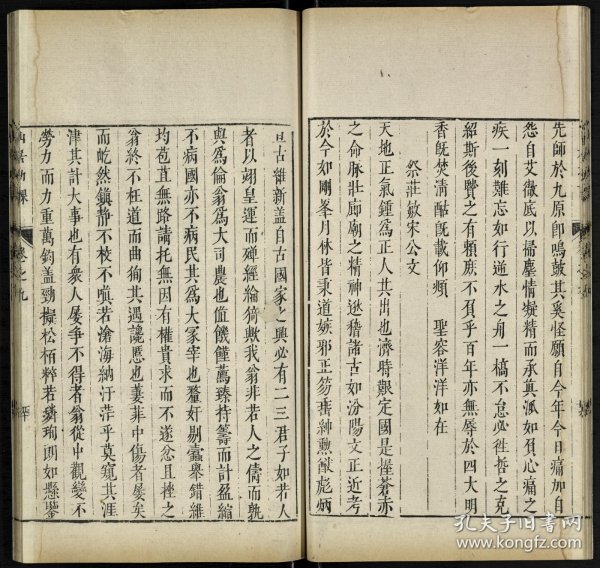 先師於九原即鳴皷其奚怪願自今年今日痛加自
怨自艾徹底以掃塵情凝精而永真派如負心痛之
疾一刻難忘如行逆水之舟一槁不怠必徃哲之克
紹斯後賢之有賴庶不負乎百年亦無辱於四大明
香旣焚清酤旣載仰頫 聖容洋洋如在
祭莊敏宋公文
天地正氣鍾爲正人其出也濟時艱定國是握蒼赤
之命脉壯廊廟之精神逖稽諸古如汾陽文正近考
於今如剛峯月林皆秉道嫉邪正笏垂紳勲猷彪炳
亘古維新盖自古國家之興必有二三君子如若人
者以翊皇運而殫經綸猗歟我翁非若人之儔而孰
與爲倫翁爲大司農也值饑饉薦臻持籌而計盈縮
不病國亦不病民其爲大冢宰也釐奸剔蠹舉錯維
均苞苴無路請托無因有權貴求而不遂忿且挫之
翁終不枉道而曲狥其遇讒慝也萋菲中傷者屡矣
而屹然鎮静不校不嗔若滄海納汙茫乎莫窺其涯
津其計大事也有衆人屡爭不得者翁從中觀變不
勞力而力重萬鈞盖勁擬松栢粹若璘珣朗如懸鑒
山居功課
卷之九
孔夫子旧書网
www.kongfz.com